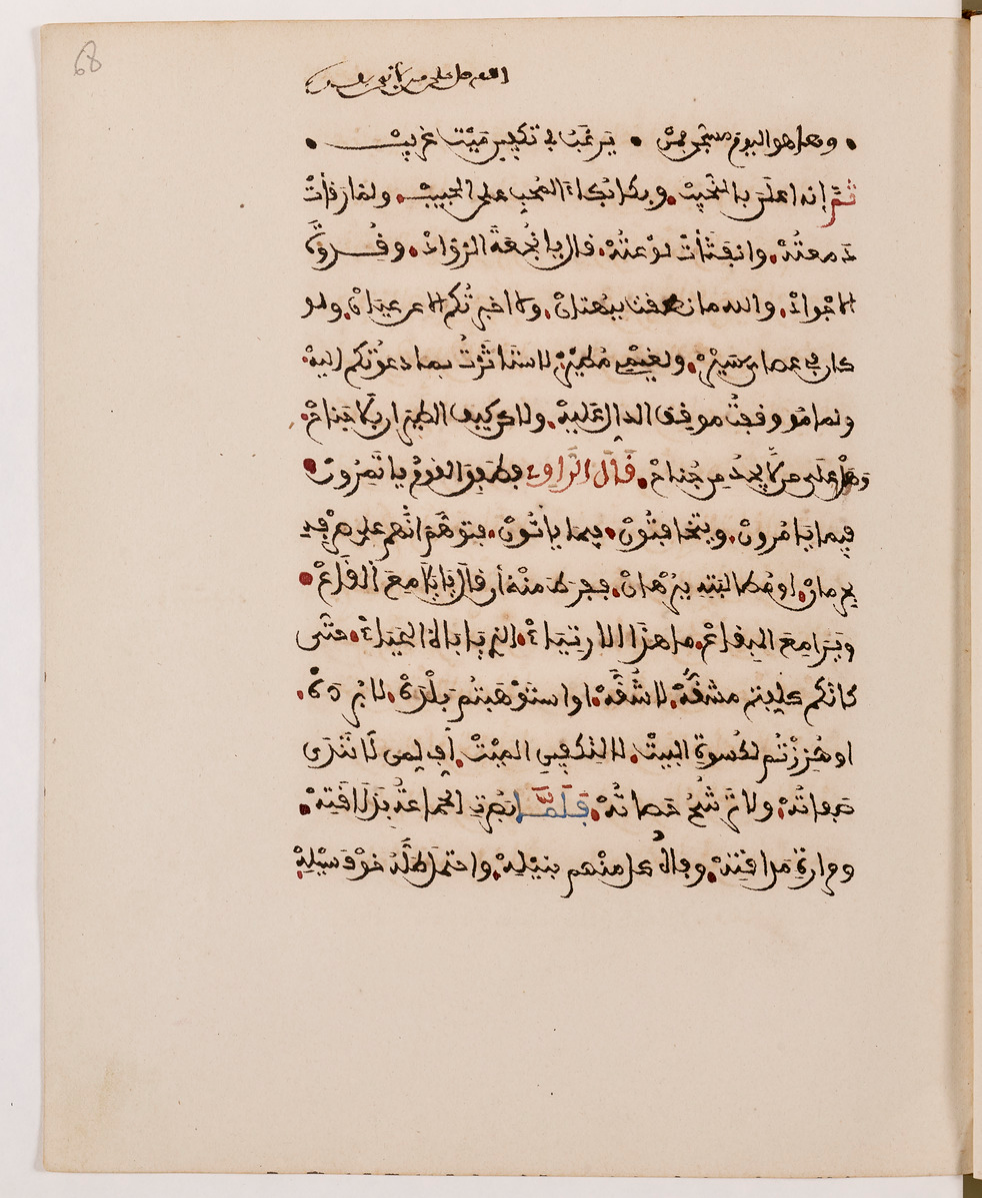 68
اللهم صل على سيدنا
وها هو اليوم مسجى فمن • يَرغَبُ في تكفين مَيْت غريبْ
ثمَّ إنه اعلَنَ بالنَّحيبْ. وبكا بُكاءَ المحب على الحبيبْ. ولما رَقأتْ
دَمعتُهْ. وانفَثأتْ لوْعتُهْ. قال يا نُجْعَةَ الرُّوادْ. وقُدوةَ
الاجْوادْ. والله ما نطقت ببُهتانْ. ولا اخبرتُكم الا عن عِيانْ. ولو
كان في عصاي سَيْرْ. ولغَيْمِي مُطَيْرْ. لاستَاثَرْتُ بما دعَوْتُكم اليهْ.
ولما وقفتُ موقف الدال عَليهْ. ولكن كيف الطيران بلا جَناحْ.
وهل على من لا يجدُ من جُناحْ. قَالَ الرَّاوي فطَفِقَ القومُ ياتَمِرُونْ
فيما يَامُرونْ. ويتخافتُونْ. فيما ياتُونْ. فتوهَّمَ انَّهم على صَرْفِهِ
بحرمانْ. او مُطالبَتِه ببُرْهانْ. ففرطَ مِنْهُ أن قال يَا يَلَامِعَ القَاعْ.
ويَرَامِعَ البِقاعْ. ما هذَا الارتِيَاءْ. الذي يَابَاهُ الحَيَاءْ. حتَّى
كانكم كلفتم مشقَّهْ. لا شُقَّهْ. او استَوْهَبتُم بَلْدَهْ. لا بُرْدَهْ.
او هُزِزْتُم لكسوةِ البيتْ. لا لتكفينِ الميْتْ. أُفٍ لِمن لَا تَنْدَى
صَفاتُهْ. ولا تَرْشَحُ حَصاتُهْ. فَلَمَّا بصُرتِ الجماعةُ بذَلَاقَتِهْ.
ومرارةِ مَذاقتِهْ. كل منْهم بنَيْلِهْ. واحتمَلَ طَلَّهُ خَوْفَ سَيْلِهْ.